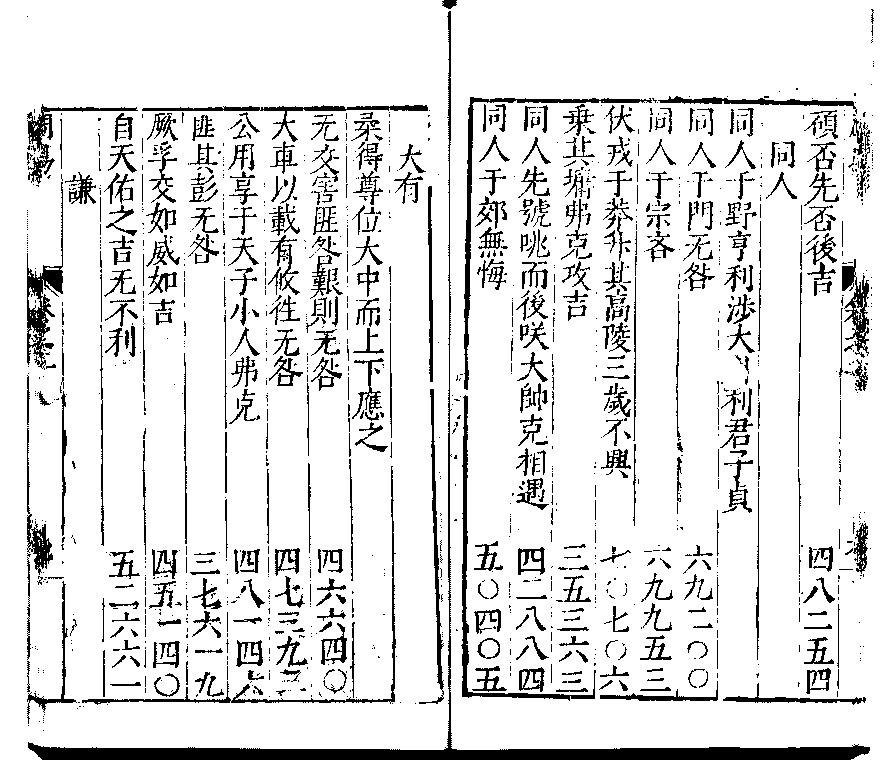 傾否先否後吉 四八二五四
同人
同人于野亨利涉大川利君子貞
同人于門无咎 六九二〇〇
同人于宗吝 六九九五三
伏戎于莽升其高陵三歲不興 七〇七〇六
乗其墉弗克攻吉 三五三六三
同人先號咷而後咲大帥克相遇 四二八八四
同人于郊無悔 五〇四〇五
大有
柔得尊位大中而上下應之
无交害匪咎艱則无咎 四六六四〇
大車以載有攸徃无咎 四七三九三
公用享于天子小人弗克 四八一四六
匪其彭无咎 三七六一九
厥孚交如威如吉 四五一四〇
自天佑之吉无不利 五二六六一
謙
周易